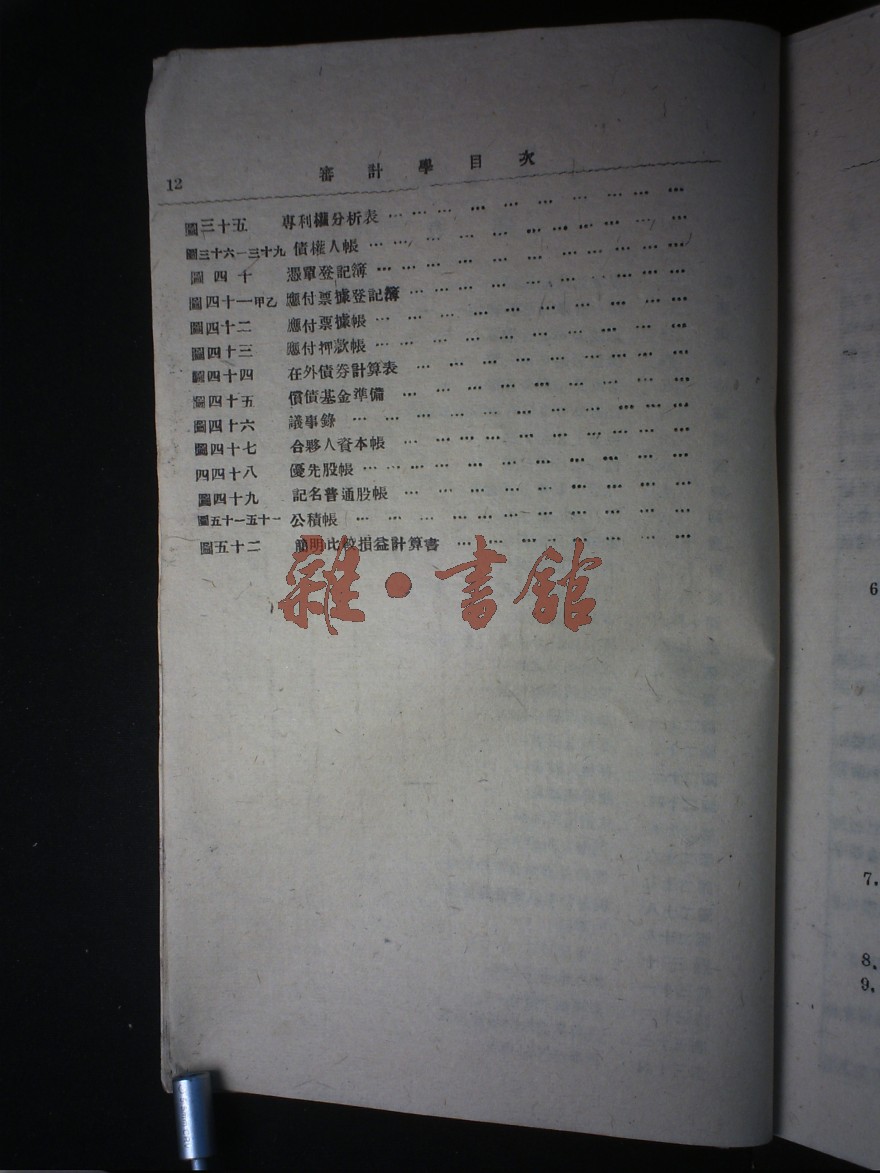 12 審計學目次
圖三十五 專利權分析表 … … … … … … … … … … …
圖三十六—三十九 債權人帳 … … … … … … … … … … …
圖四十 憑單登記簿 … … … … … … … … … … …
圖四十一甲乙 應付票據登記簿 … … … … … … … … … …
圖四十二 應付票據帳 … … … … … … … … … … …
圖四十三 應付押款帳 … … … … … … … … … … …
圖四十四 在外債券計算表 … … … … … … … … … …
圖四十五 償債基金準備 … … … … … … … … … …
圖四十六 議事錄 … … … … … … … … … … … …
圖四十七 合夥人資本帳 … … … … … … … … … …
四四十八 優先股帳 … … … … … … … … … … …
圖四十九 記名普通股帳 … … … … … … … … … …
圖五十一五十一 公積帳 … … … … … … … … … … …
圖五十二 簡明比較損益計算書 … … … … … … … …
雜·書館
6
7.
8.
9.